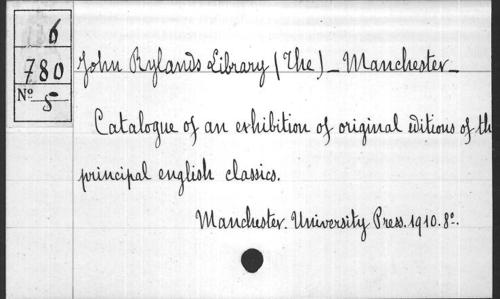 6
780
Nº 5
John Rylands Library (The) _ Manchester _
Catalogue of an exhibition of original editions of th
principal english classics.
Manchester. University Press. 1910. 8º.